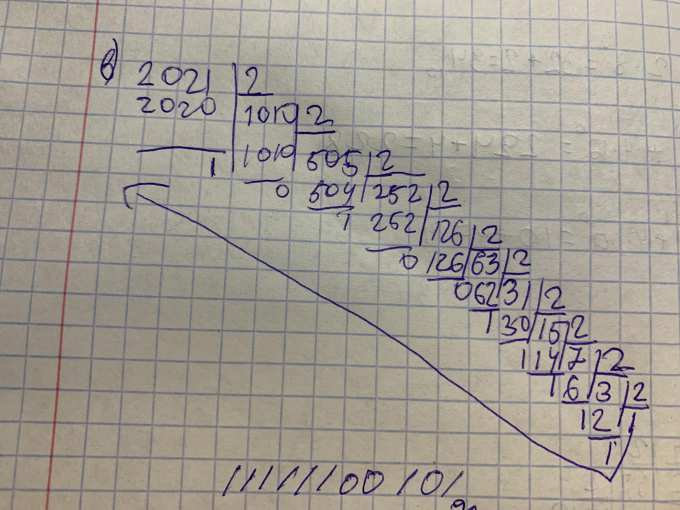 в) 2021 2
2020 1010 2
1 1010 505 2
0 504 252 2
1 252 126 2
0 126 63 2
0 62 31 2
1 30 15 2
1 14 7 2
1 6 3 2
1 2 1
1
11111100101